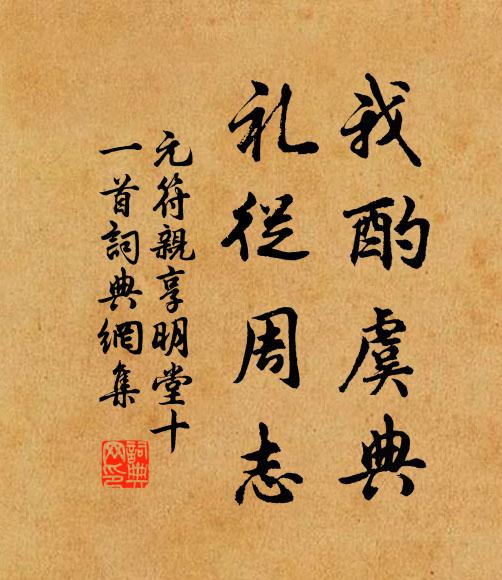 我酌虞典
礼從周志
元符親享明堂十
一首詞典網集
詞典
网印